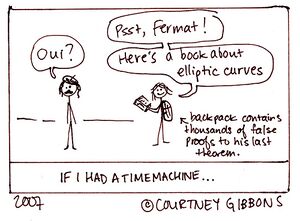 Oui?
Psst, Fermat!
Here's a book about
elliptic curves
backpack contains
thousands of false
proofs to his last
theorem.
IF I HAD A TIME MACHINE...
2007
©COURTNEY GIBBONS